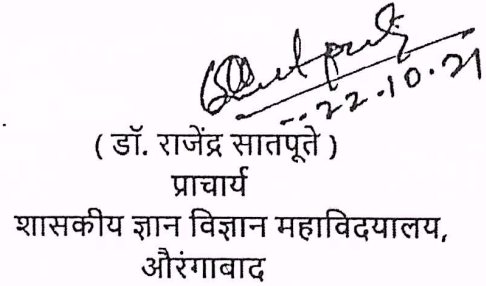 22.10.21
( डॉ. राजेंद्र सातपूते )
प्राचार्य
शासकीय ज्ञान विज्ञान महाविदयालय,
औरंगाबाद